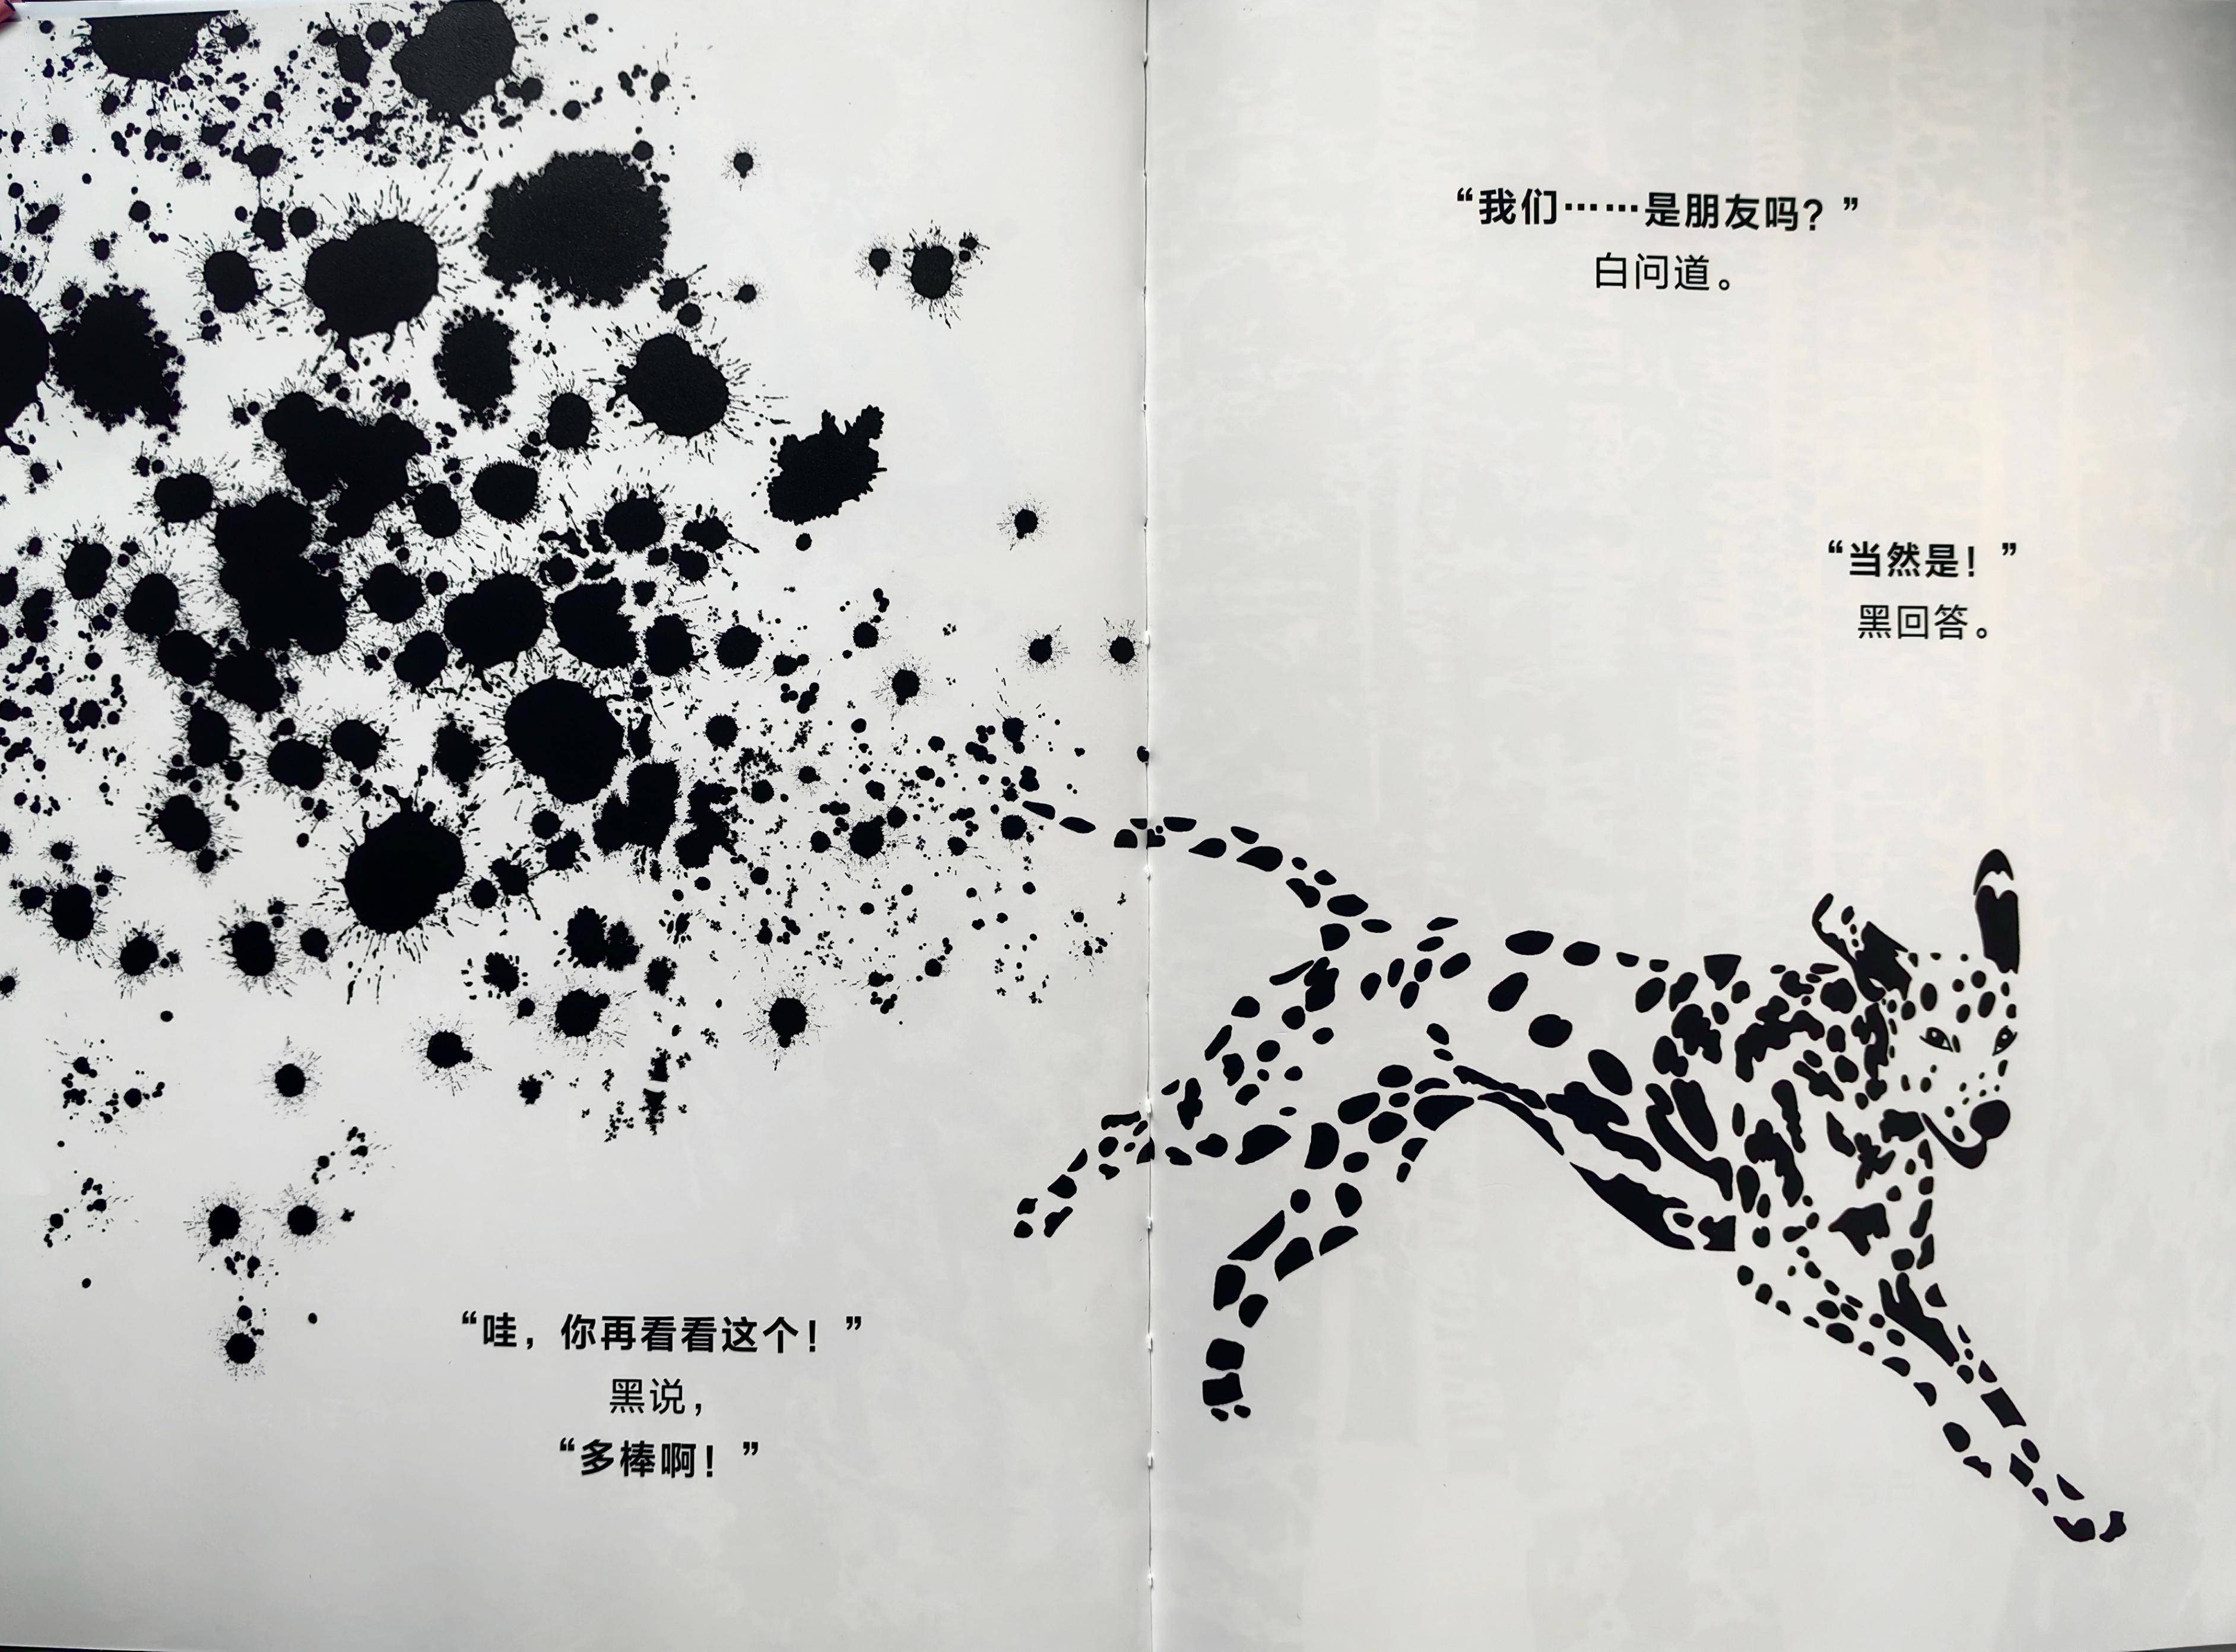 “哇，你再看看这个！”
黑说，
“多棒啊！”
“我们……是朋友吗？”
白问道。
“当然是！”
黑回答。